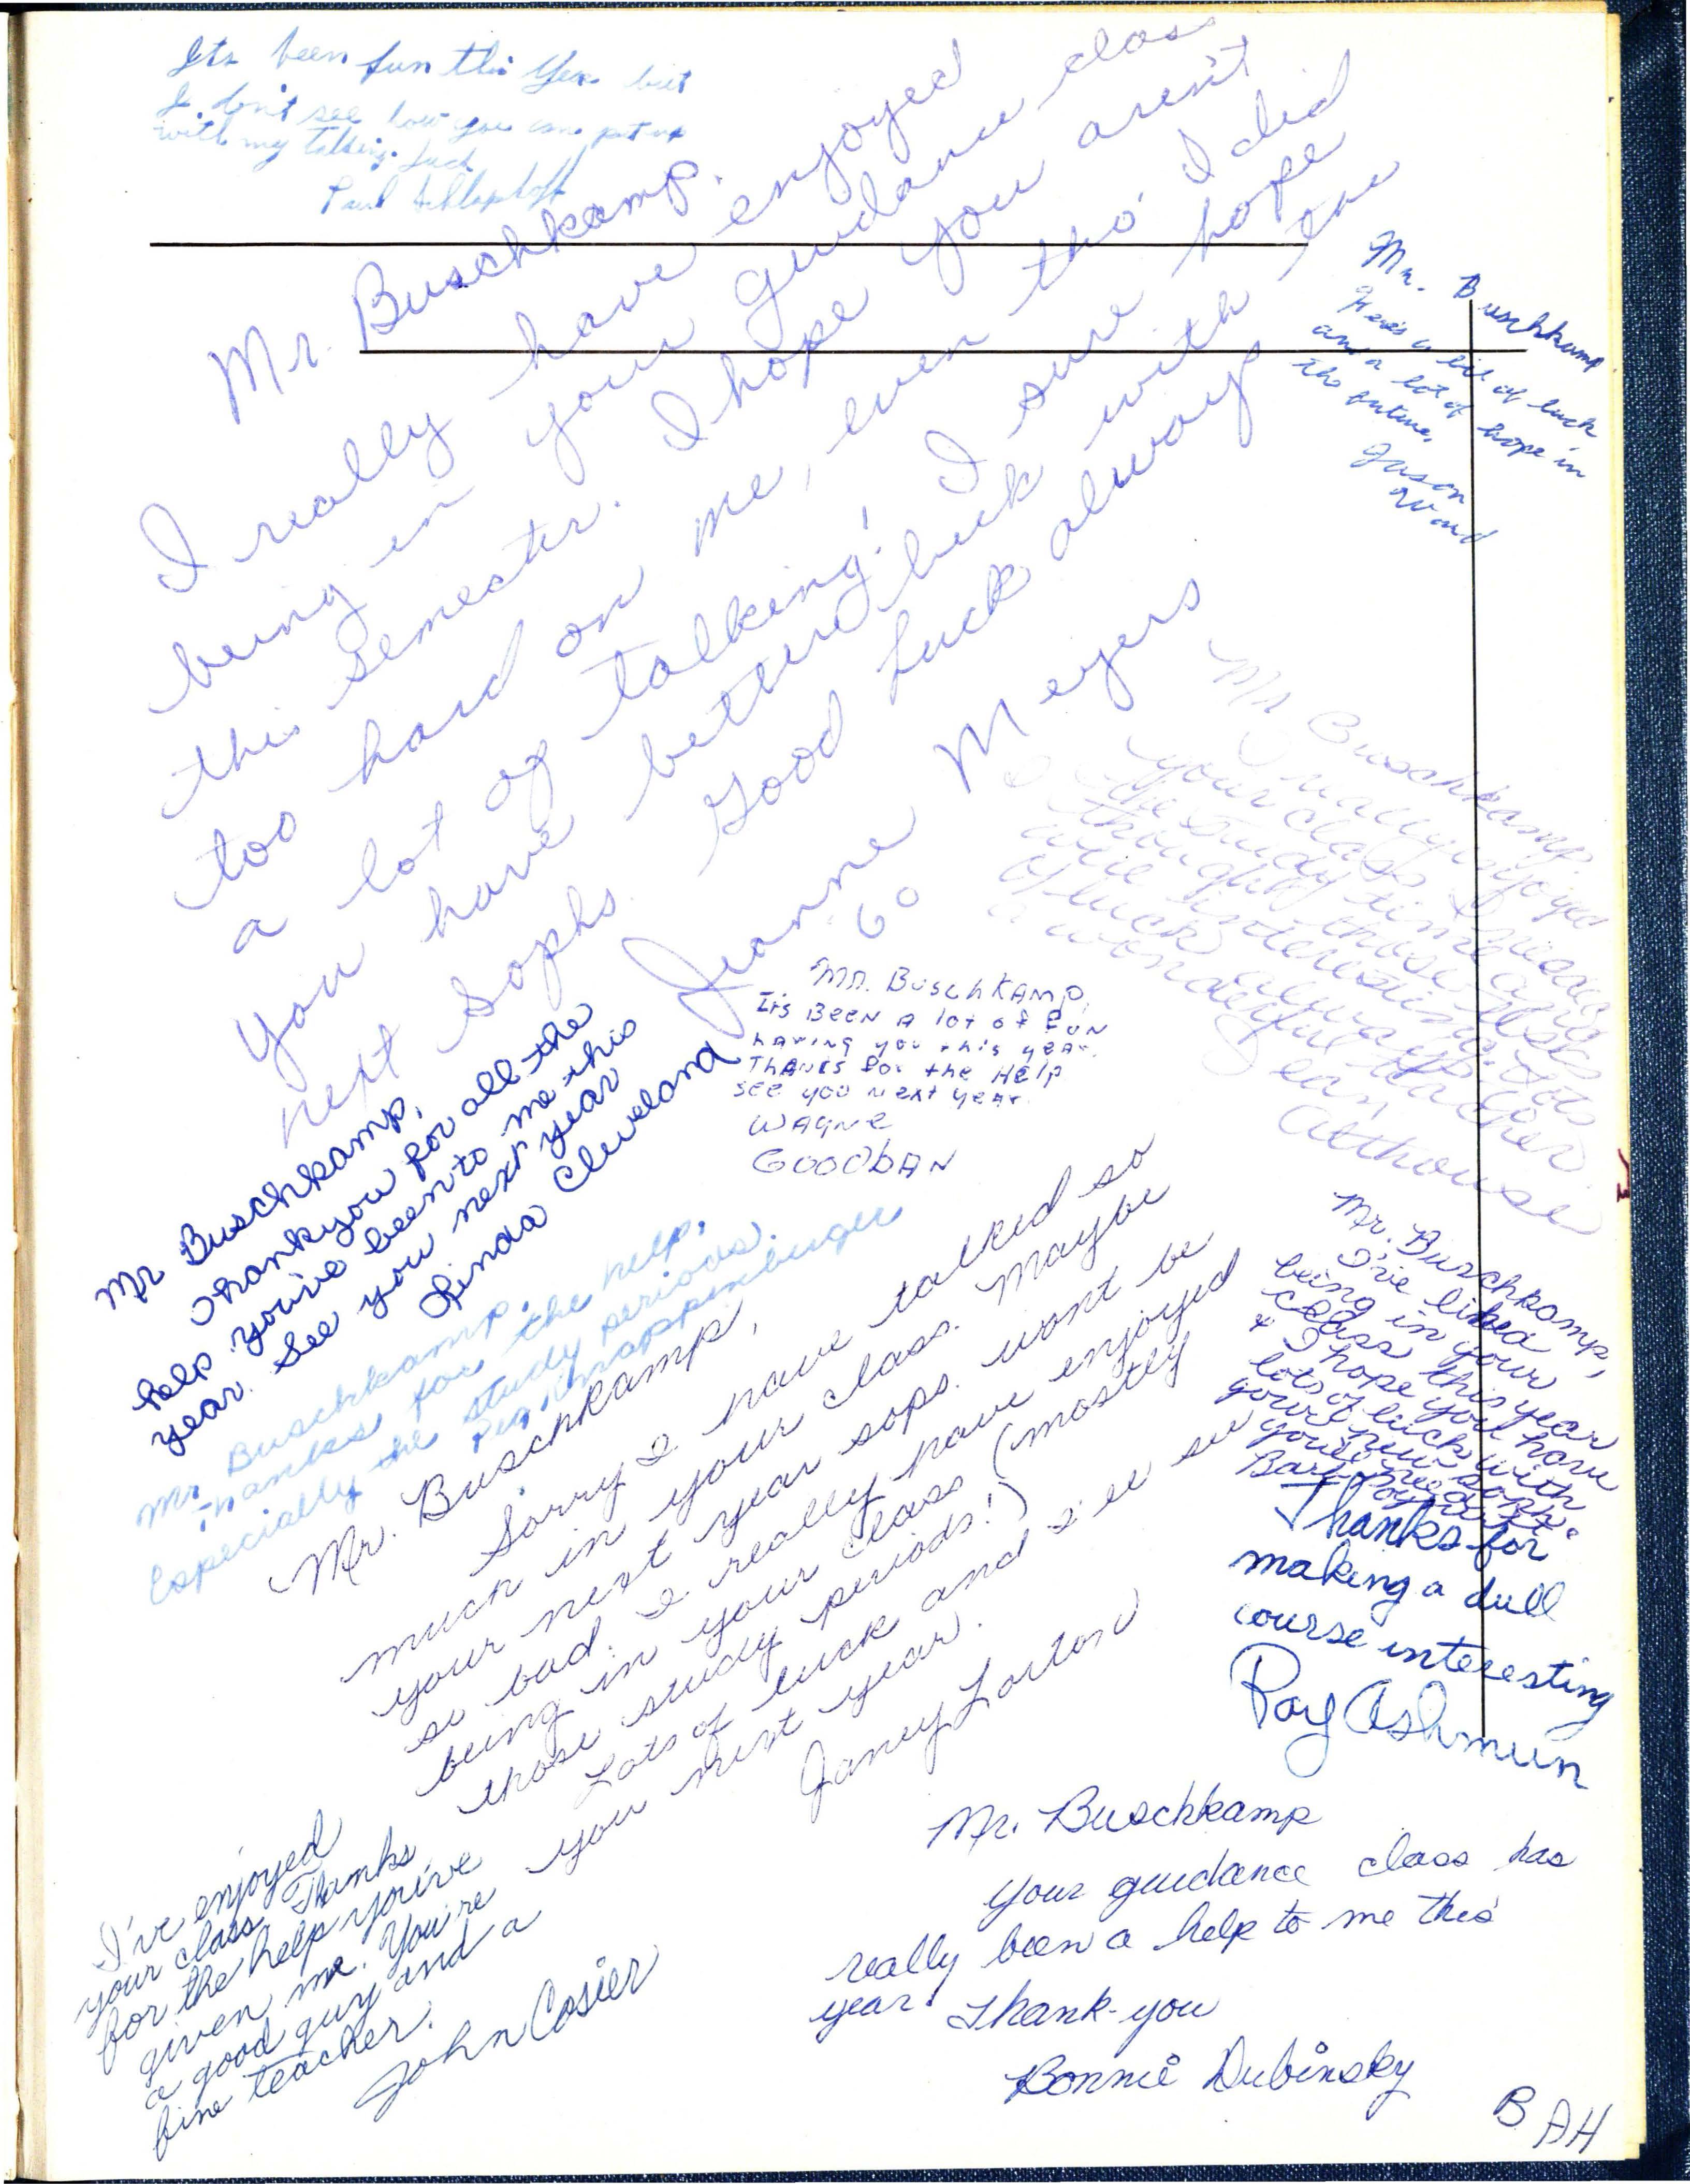 Its been fun this year but
I don't see how you can put up
with my talking. Luck
Paul
Mr. Buschkamp,
I really have enjoyed
being in your guidance class
this semester. I hope you aren't
too hard on me, even tho' I did
a lot of talking! I sure hope
you have better luck with
next Sophs. Good Luck always
Jeanne Meyers
60
Mr. Buschkamp
Here's a bit of luck
and a lot of hope in
the future.
Jason
Ward
Mr Buschkamp,
I really enjoyed
your class
the study time
I thought those
were interesting. Lots
of luck always
a wonderful teacher
Jean
Althouse
MR. BuschKAMP,
It's BeeN A lot of FuN
hAviNg you this yeAr.
ThANKs for the Help
see you Next yeAr.
WAyNe
GoodbAN
Mr Buschkamp,
Thankyou for all the
help you've been to me this
year. See you next year
Linda Cleveland
Mr. Buschkamp,
Thanks for the help,
especially the study periods.
Peg Knappenburger
Mr. Buschkamp,
Sorry I have talked so
much in your class. Maybe
your next year sops. wont be
so bad. I really have enjoyed
being in your class (mostly
those study periods!)
Lots of luck and I'll see
you next year.
Janey Lorton
Mr. Buschkamp,
I've liked
being in your
class this year
& I hope you have
lots of luck with
your new soph.
you'll need it.
Barb
Thanks for
making a dull
course interesting
Ray Ashmun
I've enjoyed
your class. Thanks
for the help you've
given me. You're
a good guy and a
fine teacher.
John Cosier
Mr. Buschkamp
Your guidance class has
really been a help to me this
year. Thank-you
Bonnie Dubinsky
B AH